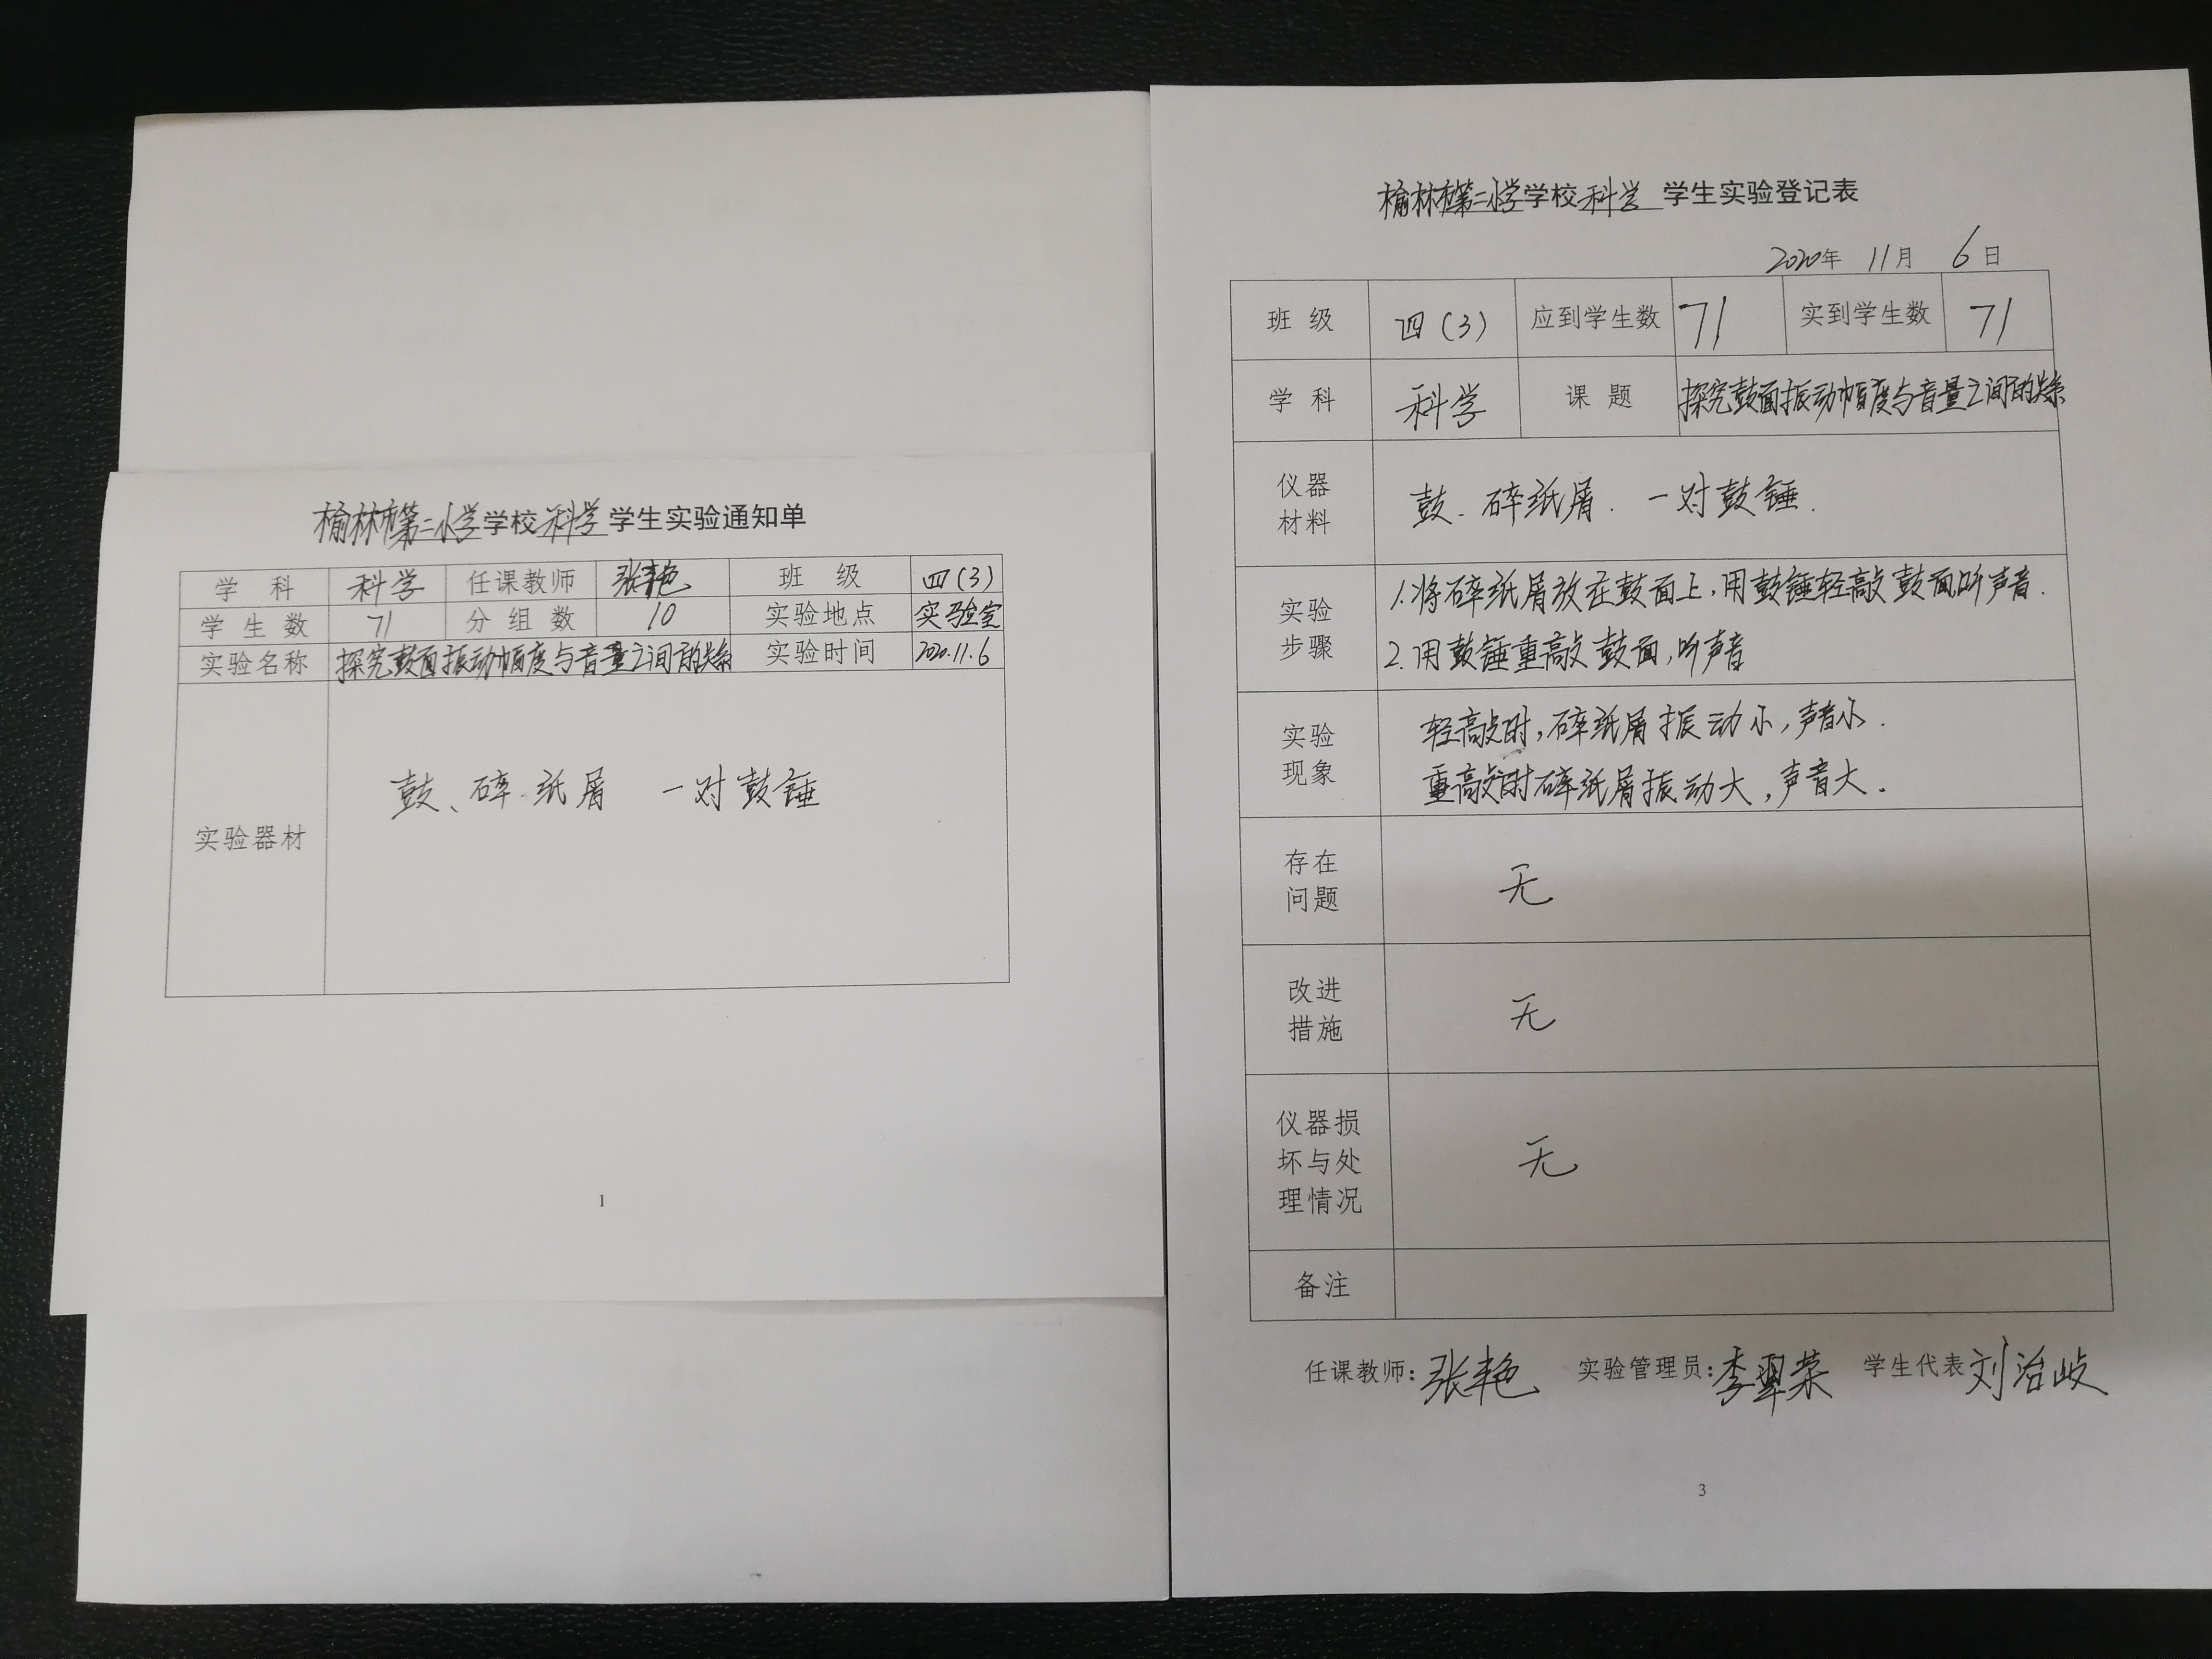 榆林市第二小学学校科学学生实验通知单
学 科 科学 任课教师 张艳 班 级 四(3)
学生数 71 分组数 10 实验地点 实验室
实验名称 探究鼓面振动幅度与音量之间的关系 实验时间 2020.11.6
实验器材 鼓、碎纸屑 一对鼓锤
1
榆林市第二小学学校科学 学生实验登记表
2020年 11月 6日
班 级 四(3) 应到学生数 71 实到学生数 71
学 科 科学 课 题 探究鼓面振动幅度与音量之间的关系
仪器
材料
鼓、碎纸屑、一对鼓锤.
实验
步骤
1.将碎纸屑放在鼓面上,用鼓锤轻敲鼓面听声音.
2.用鼓锤重敲鼓面,听声音
实验
现象
轻敲时,碎纸屑振动小,声音小.
重敲时碎纸屑振动大,声音大.
存在
问题
无
改进
措施
无
仪器损
坏与处
理情况
无
备注
任课教师:张艳 实验管理员:李翠荣 学生代表刘治岐
3